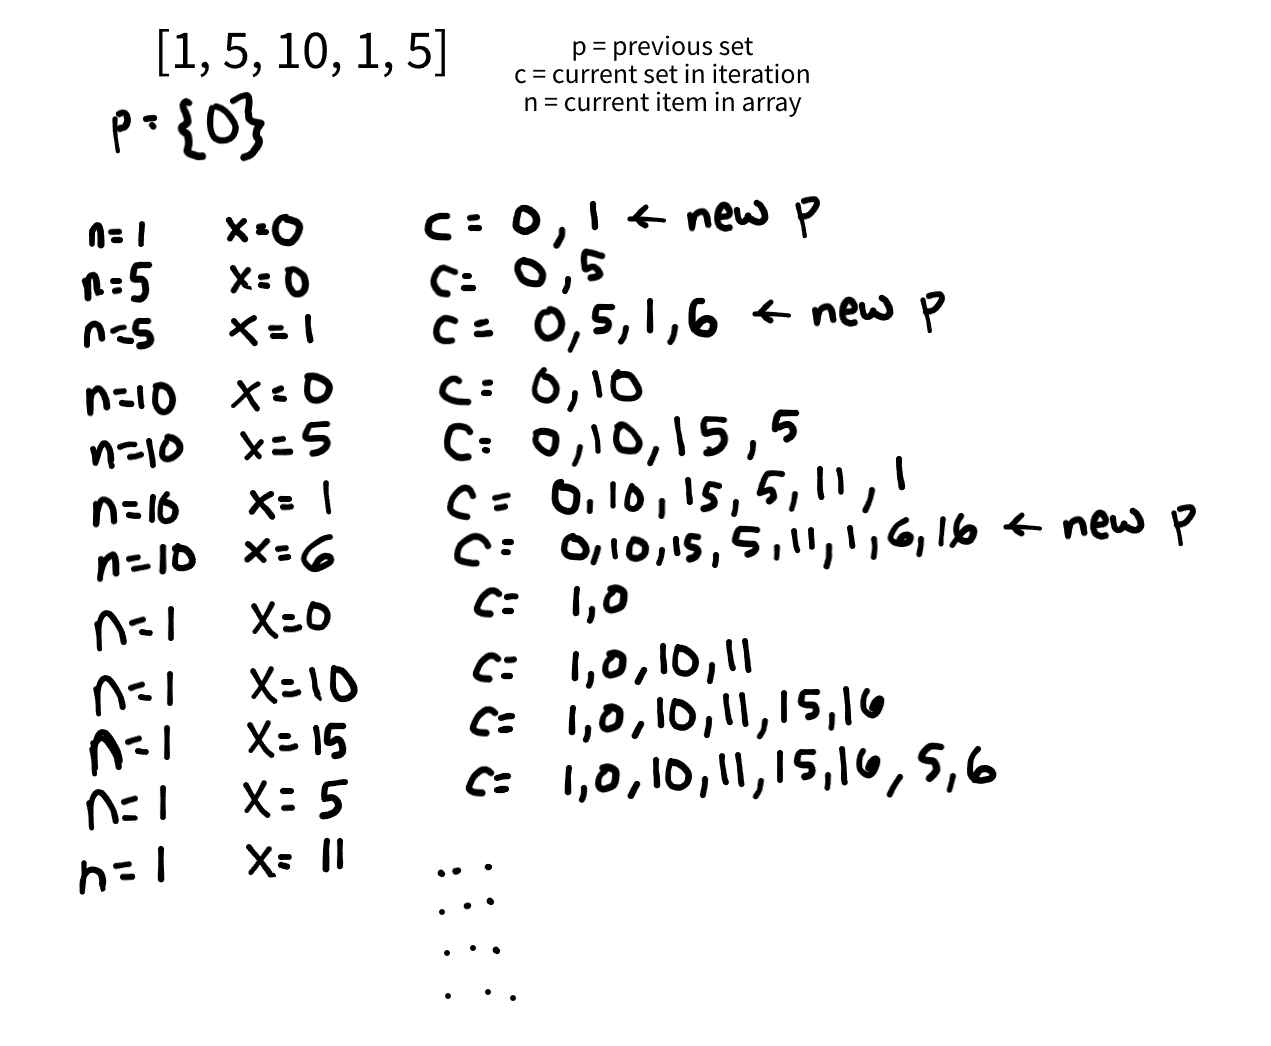 [1, 5, 10, 1, 5]
p = previous set
c = current set in iteration
n = current item in array
p = {0}
n=1 x=0 c= 0, 1 ← new p
n=5 x=0 c= 0,5
n=5 x=1 c= 0,5,1,6 ← new p
n=10 x=0 c= 0,10
n=10 x=5 c= 0,10,15,5
n=10 x=1 c= 0,10,15,5,11,1
n=10 x=6 c= 0,10,15,5,11,1,6,16 ← new p
n=1 x=0 c= 1,0
n=1 x=10 c= 1,0,10,11
n=1 x=15 c= 1,0,10,11,15,16
n=1 x=5 c= 1,0,10,11,15,16,5,6
n=1 x=11 ...
...
...
...